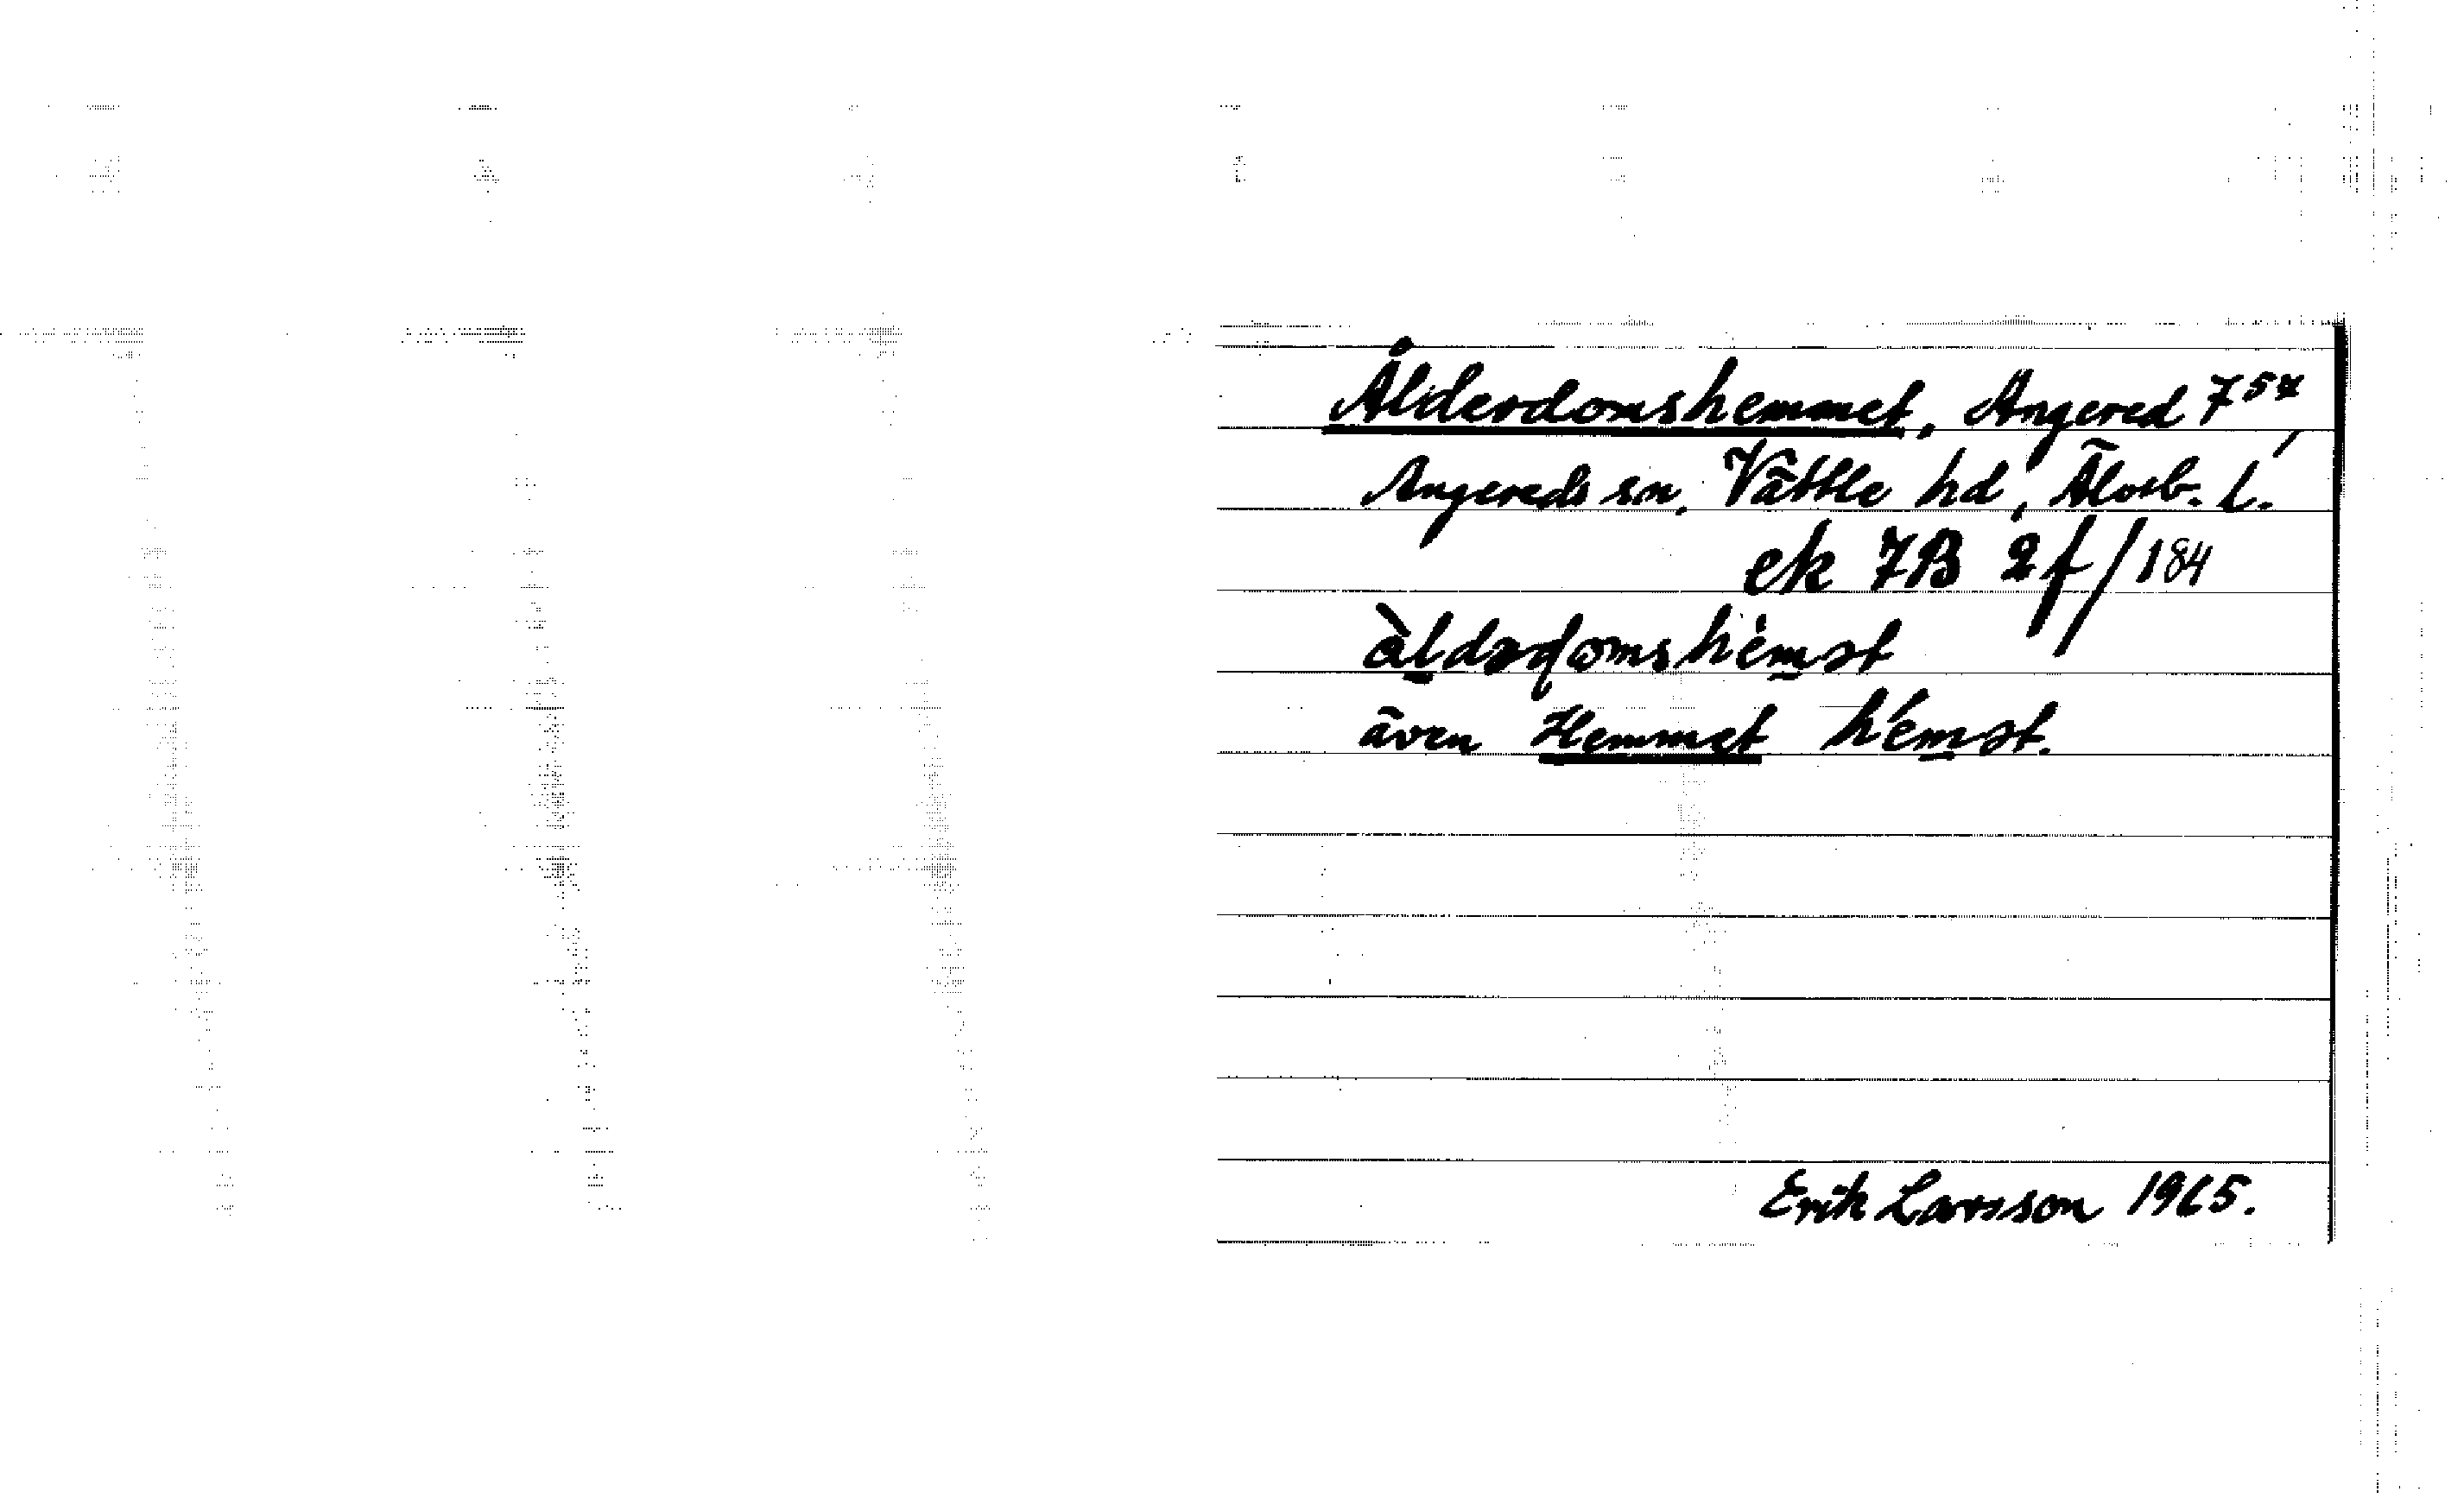 Ålderdomshemmet, Angered 7⁵⁴,
Angereds sn, Vättle hd, Älvsb. l.
ek 7B 2f/184
àldərdomshém̲ət
även Hemmet hém̲ət.
Erik Larsson 1965.